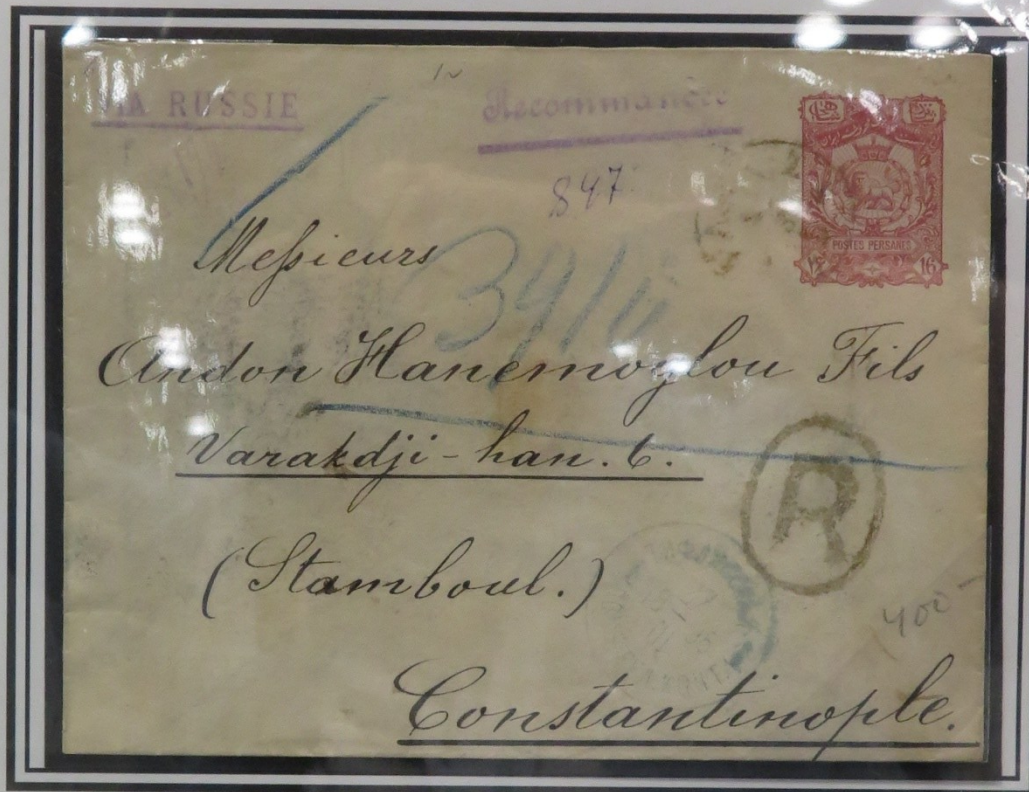 VIA RUSSIE
Recommandée
847
POSTES PERSANES
16
Messieurs
Andon Hanemoglou Fils
Varakdji-han. 6.
(Stamboul.)
R
400-
Constantinople.